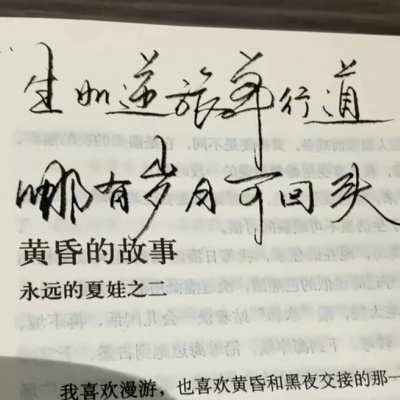 生如逆旅单行道
哪有岁月可回头
黄昏的故事
永远的夏娃之二
我喜欢漫游，也喜欢黄昏和黑夜交接的那一